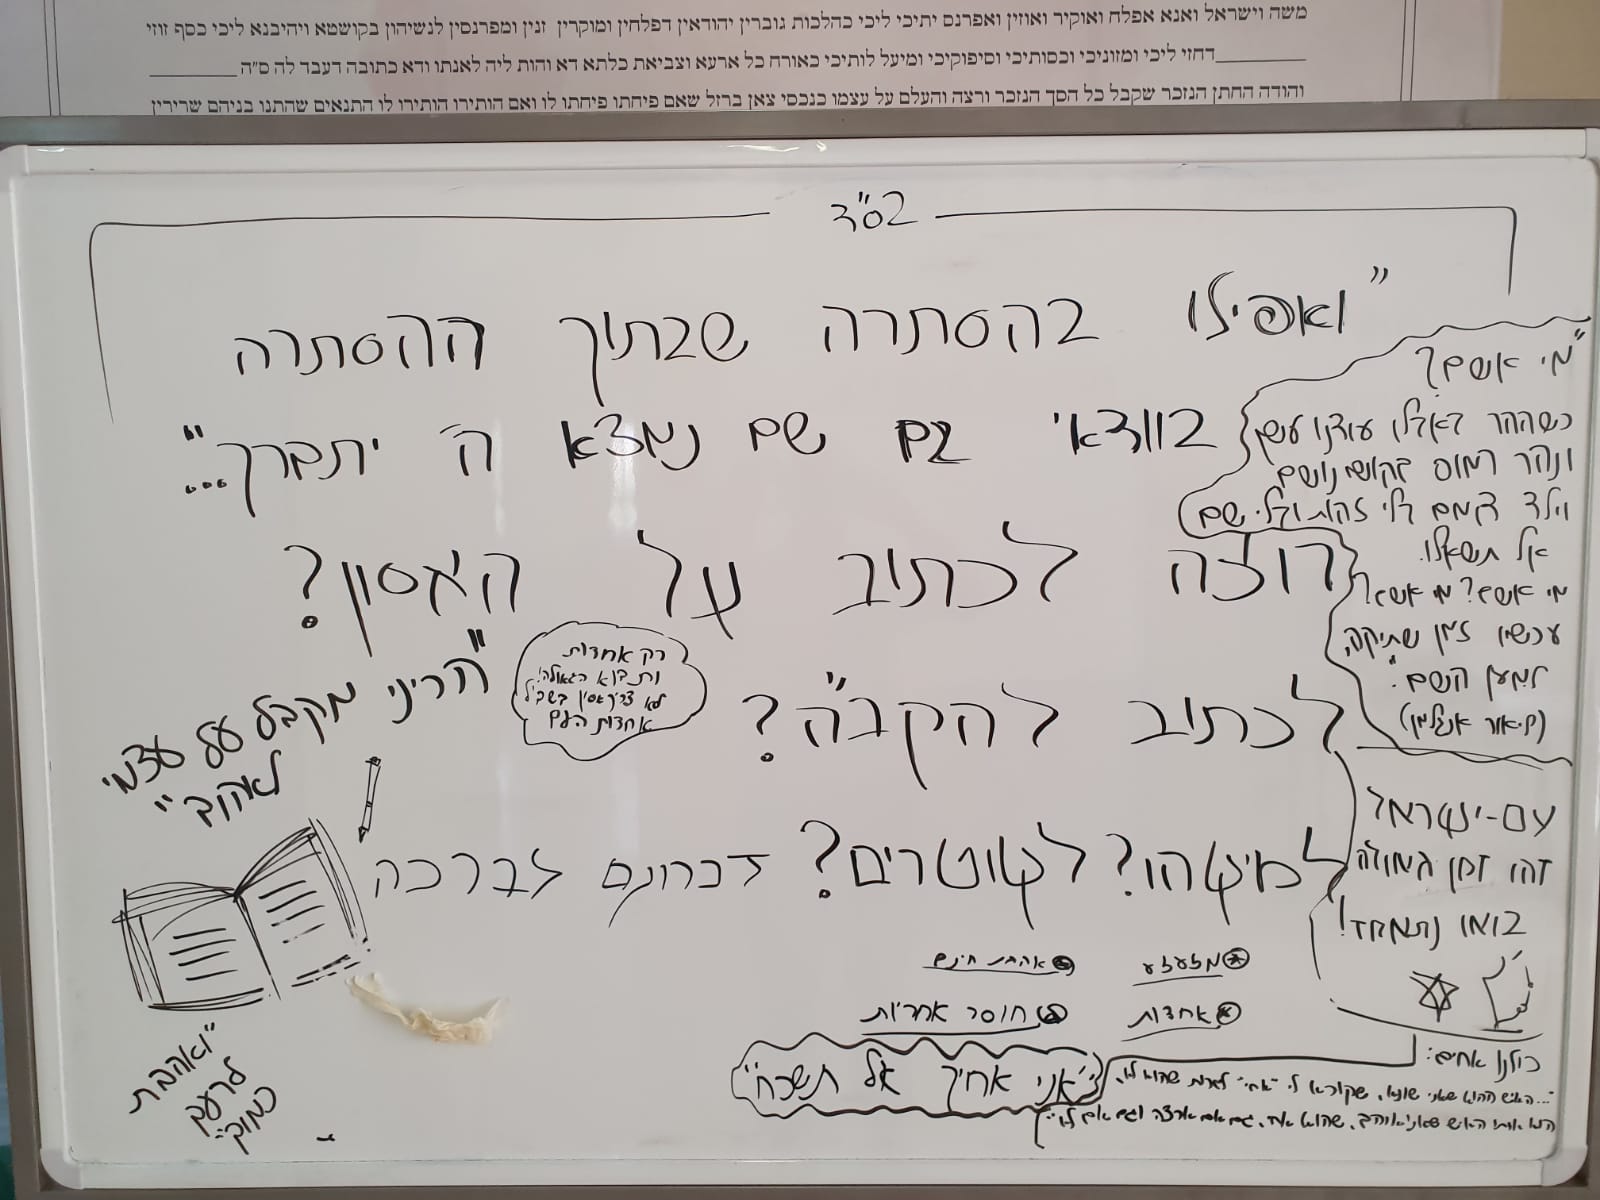 משה וישראל ואנא אפלח ואוקיר ואוזין ואפרנס יתיכי ליכי כהלכות גוברין יהודאין דפלחין ומוקרין זנין ומפרנסין לנשיהון בקושטא ויהיבנא ליכי כסף זוזי
דחזי ליכי ומזוניכי וכסותיכי וסיפוקיכי ומיעל לותיכי כאורח כל ארעא וצביאת כלתא דא והות ליה לאנתו ודא כתובה דעבד לה ס״ה
והודה החתן הנזכר שקבל כל הסך הנזכר ורצה והעלם על עצמו כנכסי צאן ברזל שאם פיחתו פיחתו לו ואם הותירו הותירו לו התנאים שהתנו בניהם שרירין
בס"ד
"ואפילו בהסתרה שבתוך ההסתרה
בוודאי גם שם נמצא ה' יתברך..."
רוצה לכתוב על האסון?
לכתוב להקב"ה?
למיטהו? לקוטרים? זכרונם לברכה
"מי אשם?
כשההר באלו עודנו עשן
ונהר רמוס
וילד בלי שם
אל תשאלו.
מי אשם? מי אשם?
עכשיו זמן שתיקה,
למען השם."
רק אחדות
ות בוא הגאולה!
לא צריך אסון בשביל
אחדות העם
"הריני מקבל על עצמי
לאהוב"
עם-ישראל
זהו זמן גאולה
בואו נתאחד!
מזעזע
אהבת חינם
אחדות
חוסר אחריות
"אני אחיך אל תשכח"
כולנו אחים:
"...האיש ההוא שאני שונא, שקורא לי "אחי" למרות שהוא לא,
הוא אותו האיש שאני אוהב, שהוא אח, גם אם ארצה וגם אם לא."
"ואהבת
לרעך
כמוך"